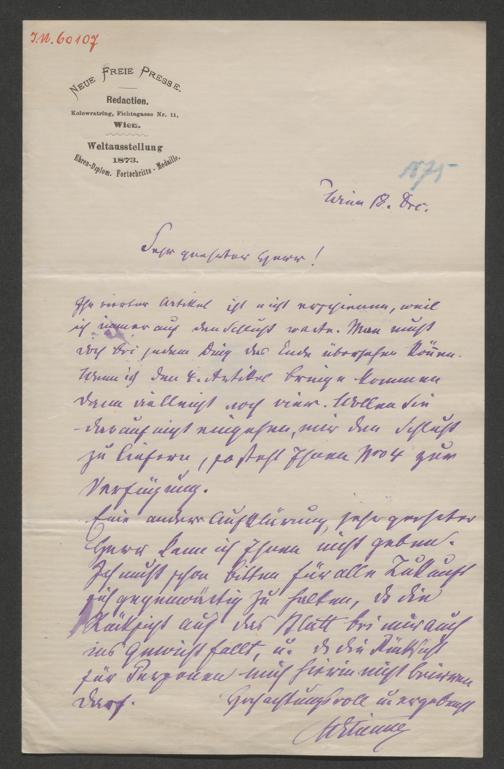 I.N. 60107
NEUE FREIE PRESSE.
Redaction.
Kolowratring, Fichtegasse Nr. 11,
Wien.
Weltausstellung
1873.
Ehren-Diplom. Fortschritts-Medaille.
1875
Wien 18. Dec.
Sehr geehrter Herr!
Ihr vierter Artikel ist nicht erschienen, weil
ich immer auf den Schluß warte. Man muß
doch bei jedem Ding das Ende übersehen können.
Wenn ich den 4. Artikel bringe kommen
dann vielleicht noch vier. Wollen Sie
darauf eingehen, mir den Schluß
zu liefern, so steht Ihnen No 4 zur
Verfügung.
Eine andere Aufklärung, sehr geehrter
Herr kann ich Ihnen nicht geben.
Ich muß schon bitten für alle Zukunft
sich gegenwärtig zu halten, daß die
Rücksicht auf das Blatt bei mir auch
ins Gewicht fällt, u. daß die Rücksicht
für Personen mich hierin nicht beirren
darf. Hochachtungsvoll u. ergebenst
Etienne